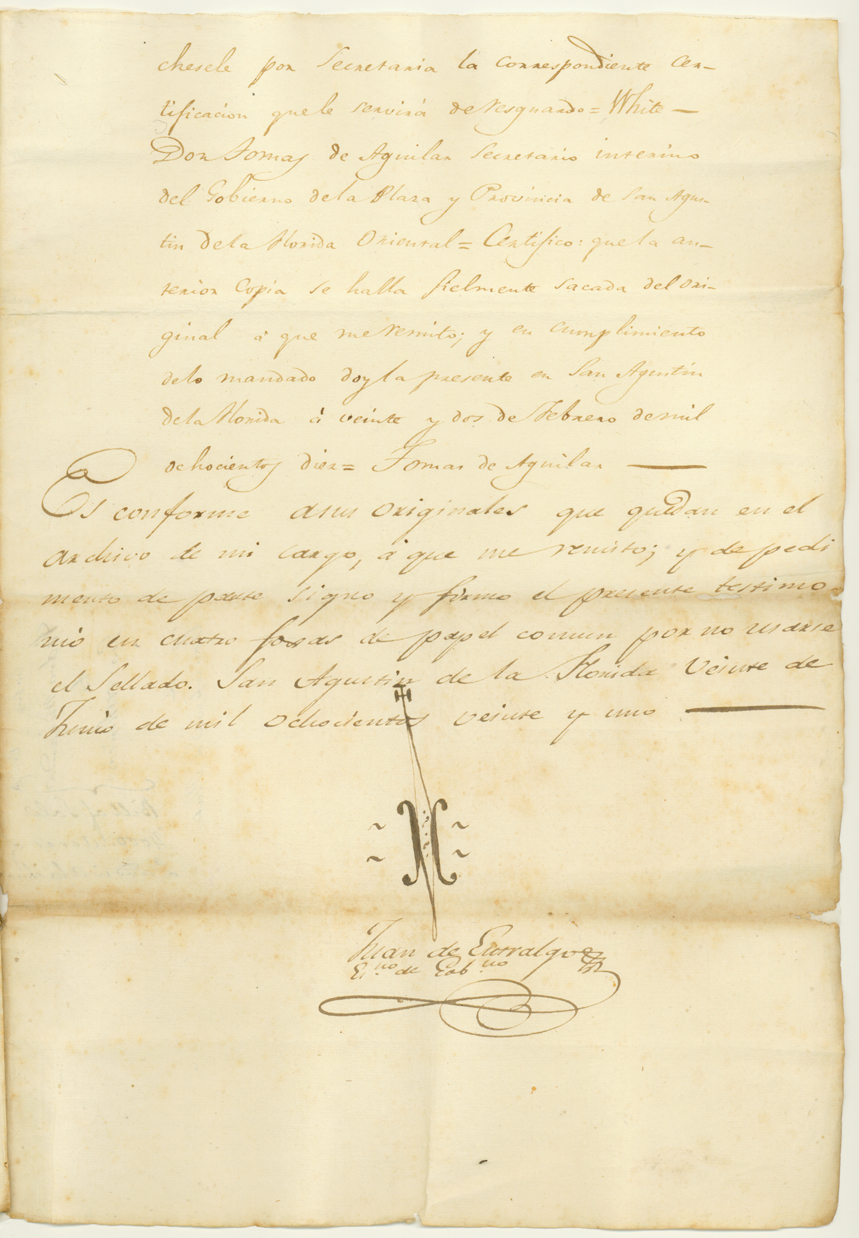 chesele por Secretaria la correspondiente Cer-
tificacion que le servirá de resguardo = White —
Don Tomas de Aguilar Secretario interino
del Gobierno de la Plaza y Provincia de San Agus-
tin de la Florida Oriental = Certifico: que la an-
terior Copia se halla fielmente sacada del ori-
ginal á que me remito; y en cumplimiento
de lo mandado doy la presente en San Agustin
de la Florida á veinte y dos de Febrero de mil
ochocientos diez = Tomas de Aguilar —
Es conforme a sus originales que quedan en el
archivo de mi cargo, á que me remito; y de pedi
mento de parte signo y firmo el presente testimo-
nio en cuatro fojas de papel comun por no usarse
el Sellado. San Agustin de la Florida Veinte de
Junio de mil ochocientos veinte y uno —
Juan de Entralgo
E.no de Gob.no